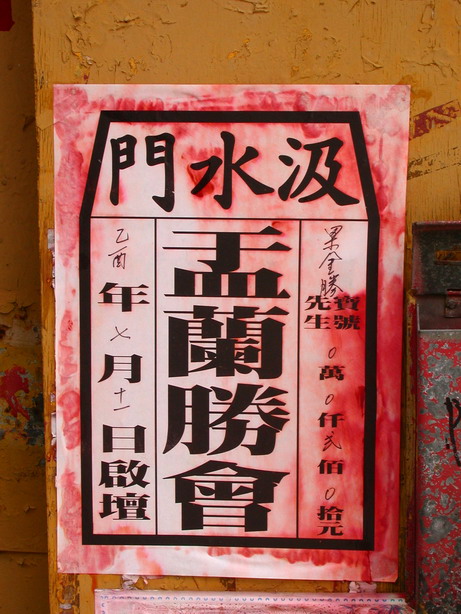 汲水門
金勝
寶號
先生
0萬0仟弍佰0拾元
盂蘭勝會
乙酉年七月十一日啟壇